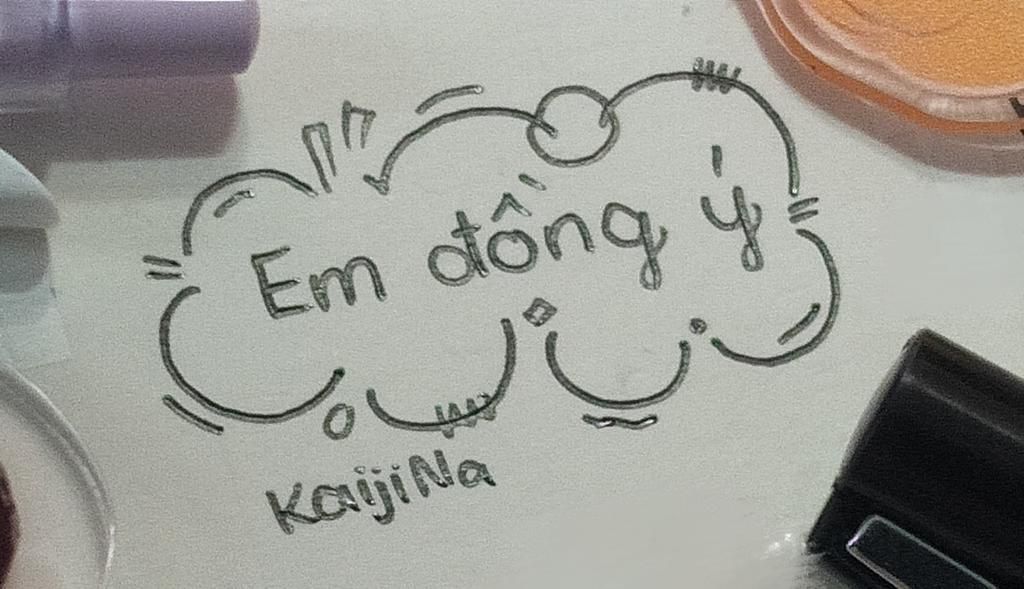 Em đồng ý
KaijiNa